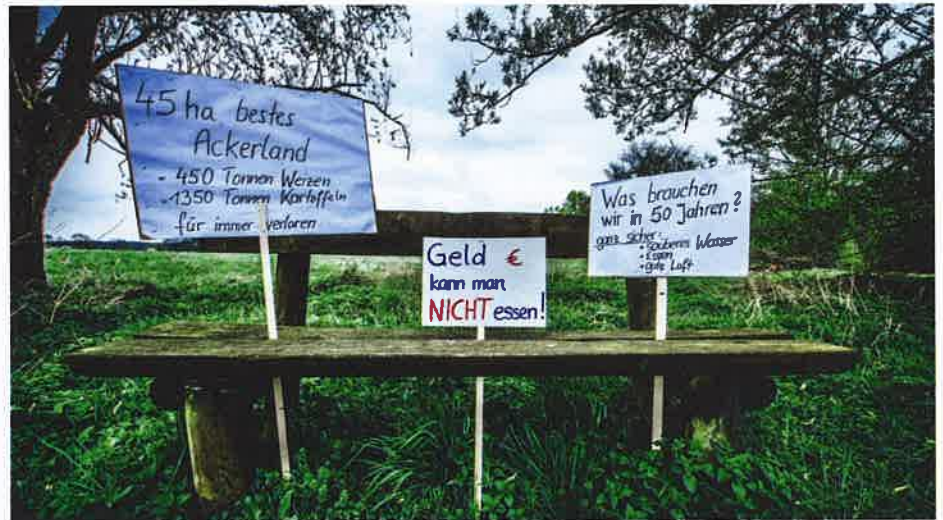 45 ha bestes
Ackerland
- 450 Tonnen Weizen
- 1350 Tonnen Kartoffeln
für immer verloren
Geld €
kann man
NICHT essen!
Was brauchen
wir in 50 Jahren?
ganz sicher:
• sauberes Wasser
• Essen
• gute Luft